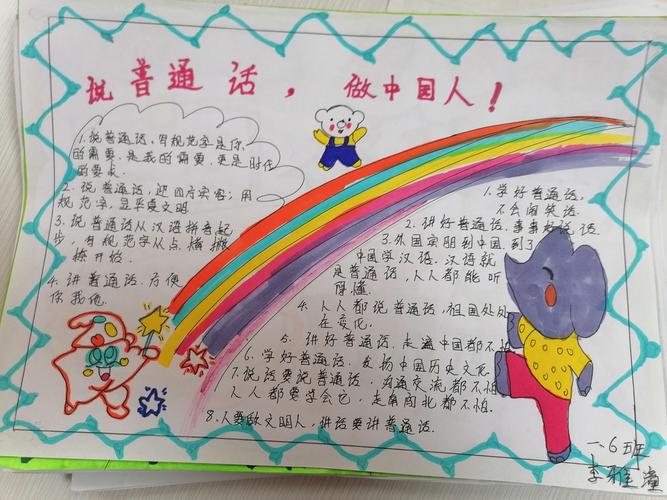 说普通话，做中国人！
1.说普通话，写规范字是你
的需要，是我的需要，更是时代
的要求.
2.说普通话，迎四方宾客；用
规范字，显华夏文明
3.说普通话从汉语拼音起
步，写规范字从点横撇
捺开始.
4.讲普通话.方便
你我他.
1.学好普通话，
不会闹笑话.
2.讲好普通话.事事 话
3.外国实朋到中国，到了
中国学汉语.汉语就
是普通话，人人都能听
得懂.
4.人人都说普通话，祖国处处
在变化.
5.讲好普通话.走遍中国都不怕
6.学好普通话.发扬中国历史文化
7.说话要说普通话，沟通交流都不怕
人人都要学会它，走南闯北都不怕.
8.人要做文明人，讲话要讲普通话.
一.6班
李雅潼